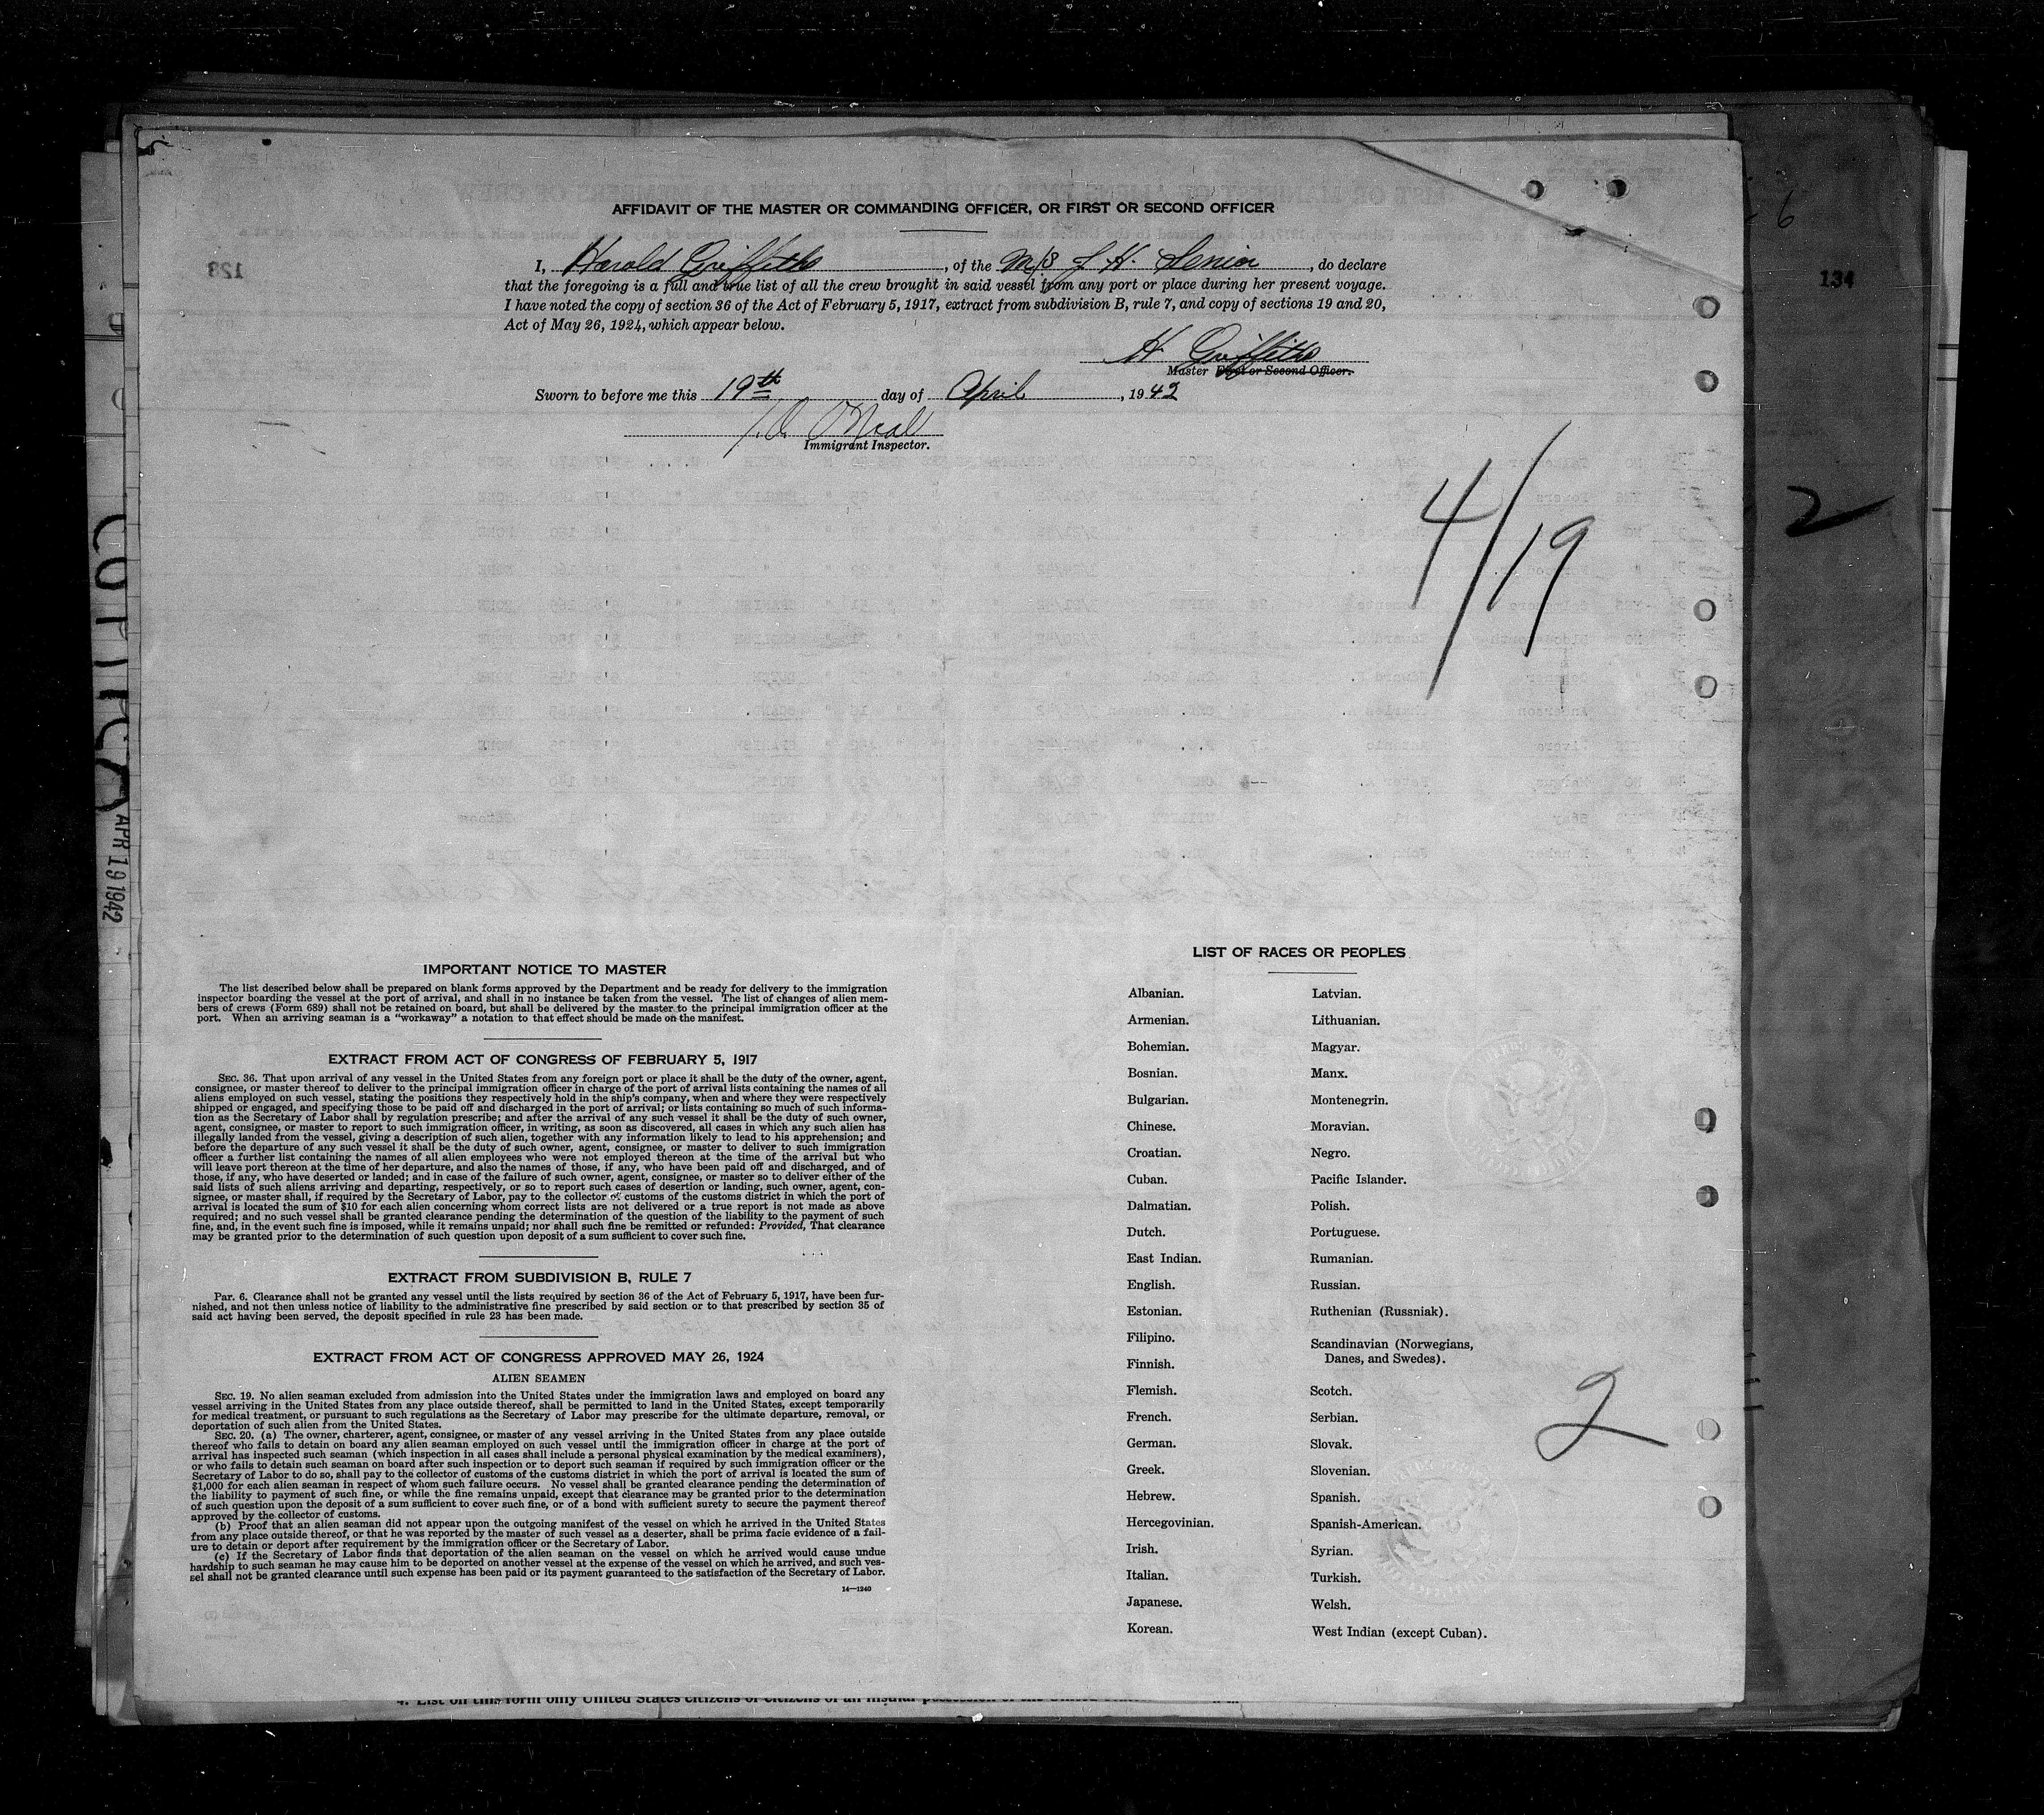 AFFIDAVIT OF THE MASTER OR COMMANDING OFFICER, OR FIRST OR SECOND OFFICER
I, Harold Griffiths, of the M/S J. H. Senior, do declare
that the foregoing is a full and true list of all the crew brought in said vessel from any port or place during her present voyage.
I have noted the copy of section 36 of the Act of February 5, 1917, extract from subdivision B, rule 7, and copy of sections 19 and 20,
Act of May 26, 1924, which appear below.
H Griffiths
Master First or Second Officer.
Sworn to before me this 19th day of April, 1942
O'Neal
Immigrant Inspector.
4/19
134
6
2
123
APR 19 1942
IMPORTANT NOTICE TO MASTER
The list described below shall be prepared on blank forms approved by the Department and be ready for delivery to the immigration
inspector boarding the vessel at the port of arrival, and shall in no instance be taken from the vessel. The list of changes of alien mem-
bers of crews (Form 689) shall not be retained on board, but shall be delivered by the master to the principal immigration officer at the
port. When an arriving seaman is a "workaway" a notation to that effect should be made on the manifest.
EXTRACT FROM ACT OF CONGRESS OF FEBRUARY 5, 1917
SEC. 36. That upon arrival of any vessel in the United States from any foreign port or place it shall be the duty of the owner, agent,
consignee, or master thereof to deliver to the principal immigration officer in charge of the port of arrival lists containing the names of all
aliens employed on such vessel, stating the positions they respectively hold in the ship's company, when and where they were respectively
shipped or engaged, and specifying those to be paid off and discharged in the port of arrival; or lists containing so much of such informa-
tion as the Secretary of Labor shall by regulation prescribe; and after the arrival of any such vessel it shall be the duty of such owner,
agent, consignee, or master to report to such immigration officer, in writing, as soon as discovered, all cases in which any such alien has
illegally landed from the vessel, giving a description of such alien, together with any information likely to lead to his apprehension; and
before the departure of any such vessel it shall be the duty of such owner, agent, consignee, or master to deliver to such immigration
officer a further list containing the names of all alien employees who were not employed thereon at the time of the arrival but who
will leave port thereon at the time of her departure, and also the names of those, if any, who have been paid off and discharged, and of
those, if any, who have deserted or landed; and in case of the failure of such owner, agent, consignee, or master so to deliver either of the
said lists of such aliens arriving and departing, respectively, or so to report such cases of desertion or landing, such owner, agent, con-
signee, or master shall, if required by the Secretary of Labor, pay to the collector of customs of the customs district in which the port of
arrival is located the sum of $10 for each alien concerning whom correct lists are not delivered or a true report is not made as above
required; and no such vessel shall be granted clearance pending the determination of the question of the liability to the payment of such
fine, and, in the event such fine is imposed, while it remains unpaid; nor shall such fine be remitted or refunded: Provided, That clearance
may be granted prior to the determination of such question upon deposit of a sum sufficient to cover such fine.
EXTRACT FROM SUBDIVISION B, RULE 7
Par. 6. Clearance shall not be granted any vessel until the lists required by section 36 of the Act of February 5, 1917, have been fur-
nished, and not then unless notice of liability to the administrative fine prescribed by said section or to that prescribed by section 35 of
said act having been served, the deposit specified in rule 23 has been made.
EXTRACT FROM ACT OF CONGRESS APPROVED MAY 26, 1924
ALIEN SEAMEN
SEC. 19. No alien seaman excluded from admission into the United States under the immigration laws and employed on board any
vessel arriving in the United States from any place outside thereof, shall be permitted to land in the United States, except temporarily
for medical treatment, or pursuant to such regulations as the Secretary of Labor may prescribe for the ultimate departure, removal, or
deportation of such alien from the United States.
SEC. 20. (a) The owner, charterer, agent, consignee, or master of any vessel arriving in the United States from any place outside
thereof who fails to detain on board any alien seaman employed on such vessel until the immigration officer in charge at the port of
arrival has inspected such seaman (which inspection in all cases shall include a personal physical examination by the medical examiners),
or who fails to detain such seaman on board after such inspection or to deport such seaman if required by such immigration officer or the
Secretary of Labor to do so, shall pay to the collector of customs of the customs district in which the port of arrival is located the sum of
$1,000 for each alien seaman in respect of whom such failure occurs. No vessel shall be granted clearance pending the determination of
the liability to payment of such fine, or while the fine remains unpaid, except that clearance may be granted prior to the determination
of such question upon the deposit of a sum sufficient to cover such fine, or of a bond with sufficient surety to secure the payment thereof
approved by the collector of customs.
(b) Proof that an alien seaman did not appear upon the outgoing manifest of the vessel on which he arrived in the United States
from any place outside thereof, or that he was reported by the master of such vessel as a deserter, shall be prima facie evidence of a fail-
ure to detain or deport after requirement by the immigration officer or the Secretary of Labor.
(c) If the Secretary of Labor finds that deportation of the alien seaman on the vessel on which he arrived would cause undue
hardship to such seaman he may cause him to be deported on another vessel at the expense of the vessel on which he arrived, and such ves-
sel shall not be granted clearance until such expense has been paid or its payment guaranteed to the satisfaction of the Secretary of Labor.
14—1240
LIST OF RACES OR PEOPLES
Albanian.
Armenian.
Bohemian.
Bosnian.
Bulgarian.
Chinese.
Croatian.
Cuban.
Dalmatian.
Dutch.
East Indian.
English.
Estonian.
Filipino.
Finnish.
Flemish.
French.
German.
Greek.
Hebrew.
Hercegovinian.
Irish.
Italian.
Japanese.
Korean.
Latvian.
Lithuanian.
Magyar.
Manx.
Montenegrin.
Moravian.
Negro.
Pacific Islander.
Polish.
Portuguese.
Rumanian.
Russian.
Ruthenian (Russniak).
Scandinavian (Norwegians,
Danes, and Swedes).
Scotch.
Serbian.
Slovak.
Slovenian.
Spanish.
Spanish-American.
Syrian.
Turkish.
Welsh.
West Indian (except Cuban).
2
4. List on this form only United States citizens or citizens of an insular